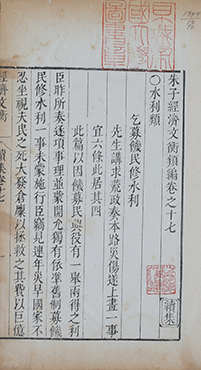 朱子經濟文衡類編卷之十七
續集
○水利類
乞募饑民修水利
先生講求荒政奏本路災傷遂上畫一事
宜六條此居其四
此篇以因饑募民興役有一舉兩得之利
臣昨所奏逐項事理並蒙開允獨有依準舊制募饑
民修水利一事未蒙施行臣竊見連年災旱國家不
忍坐視夫民之死大發倉廩以拯救之其費以巨億
經濟文衡 續集卷十七